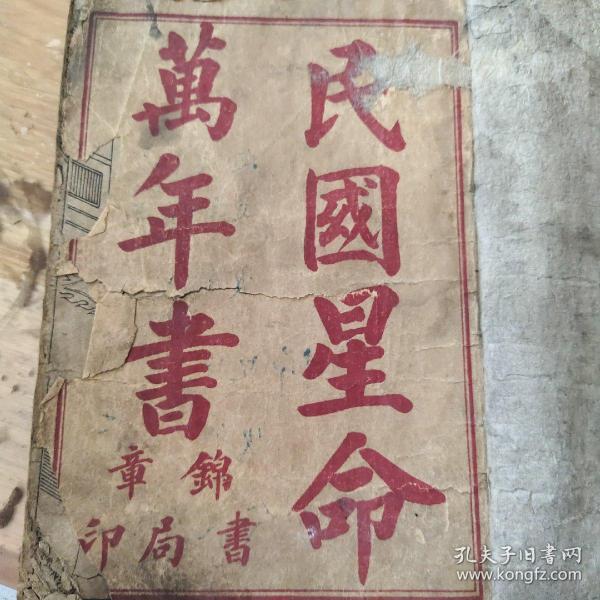 民國星命
萬年書
錦章
書局印
孔夫子旧书网
www.kongfz.com